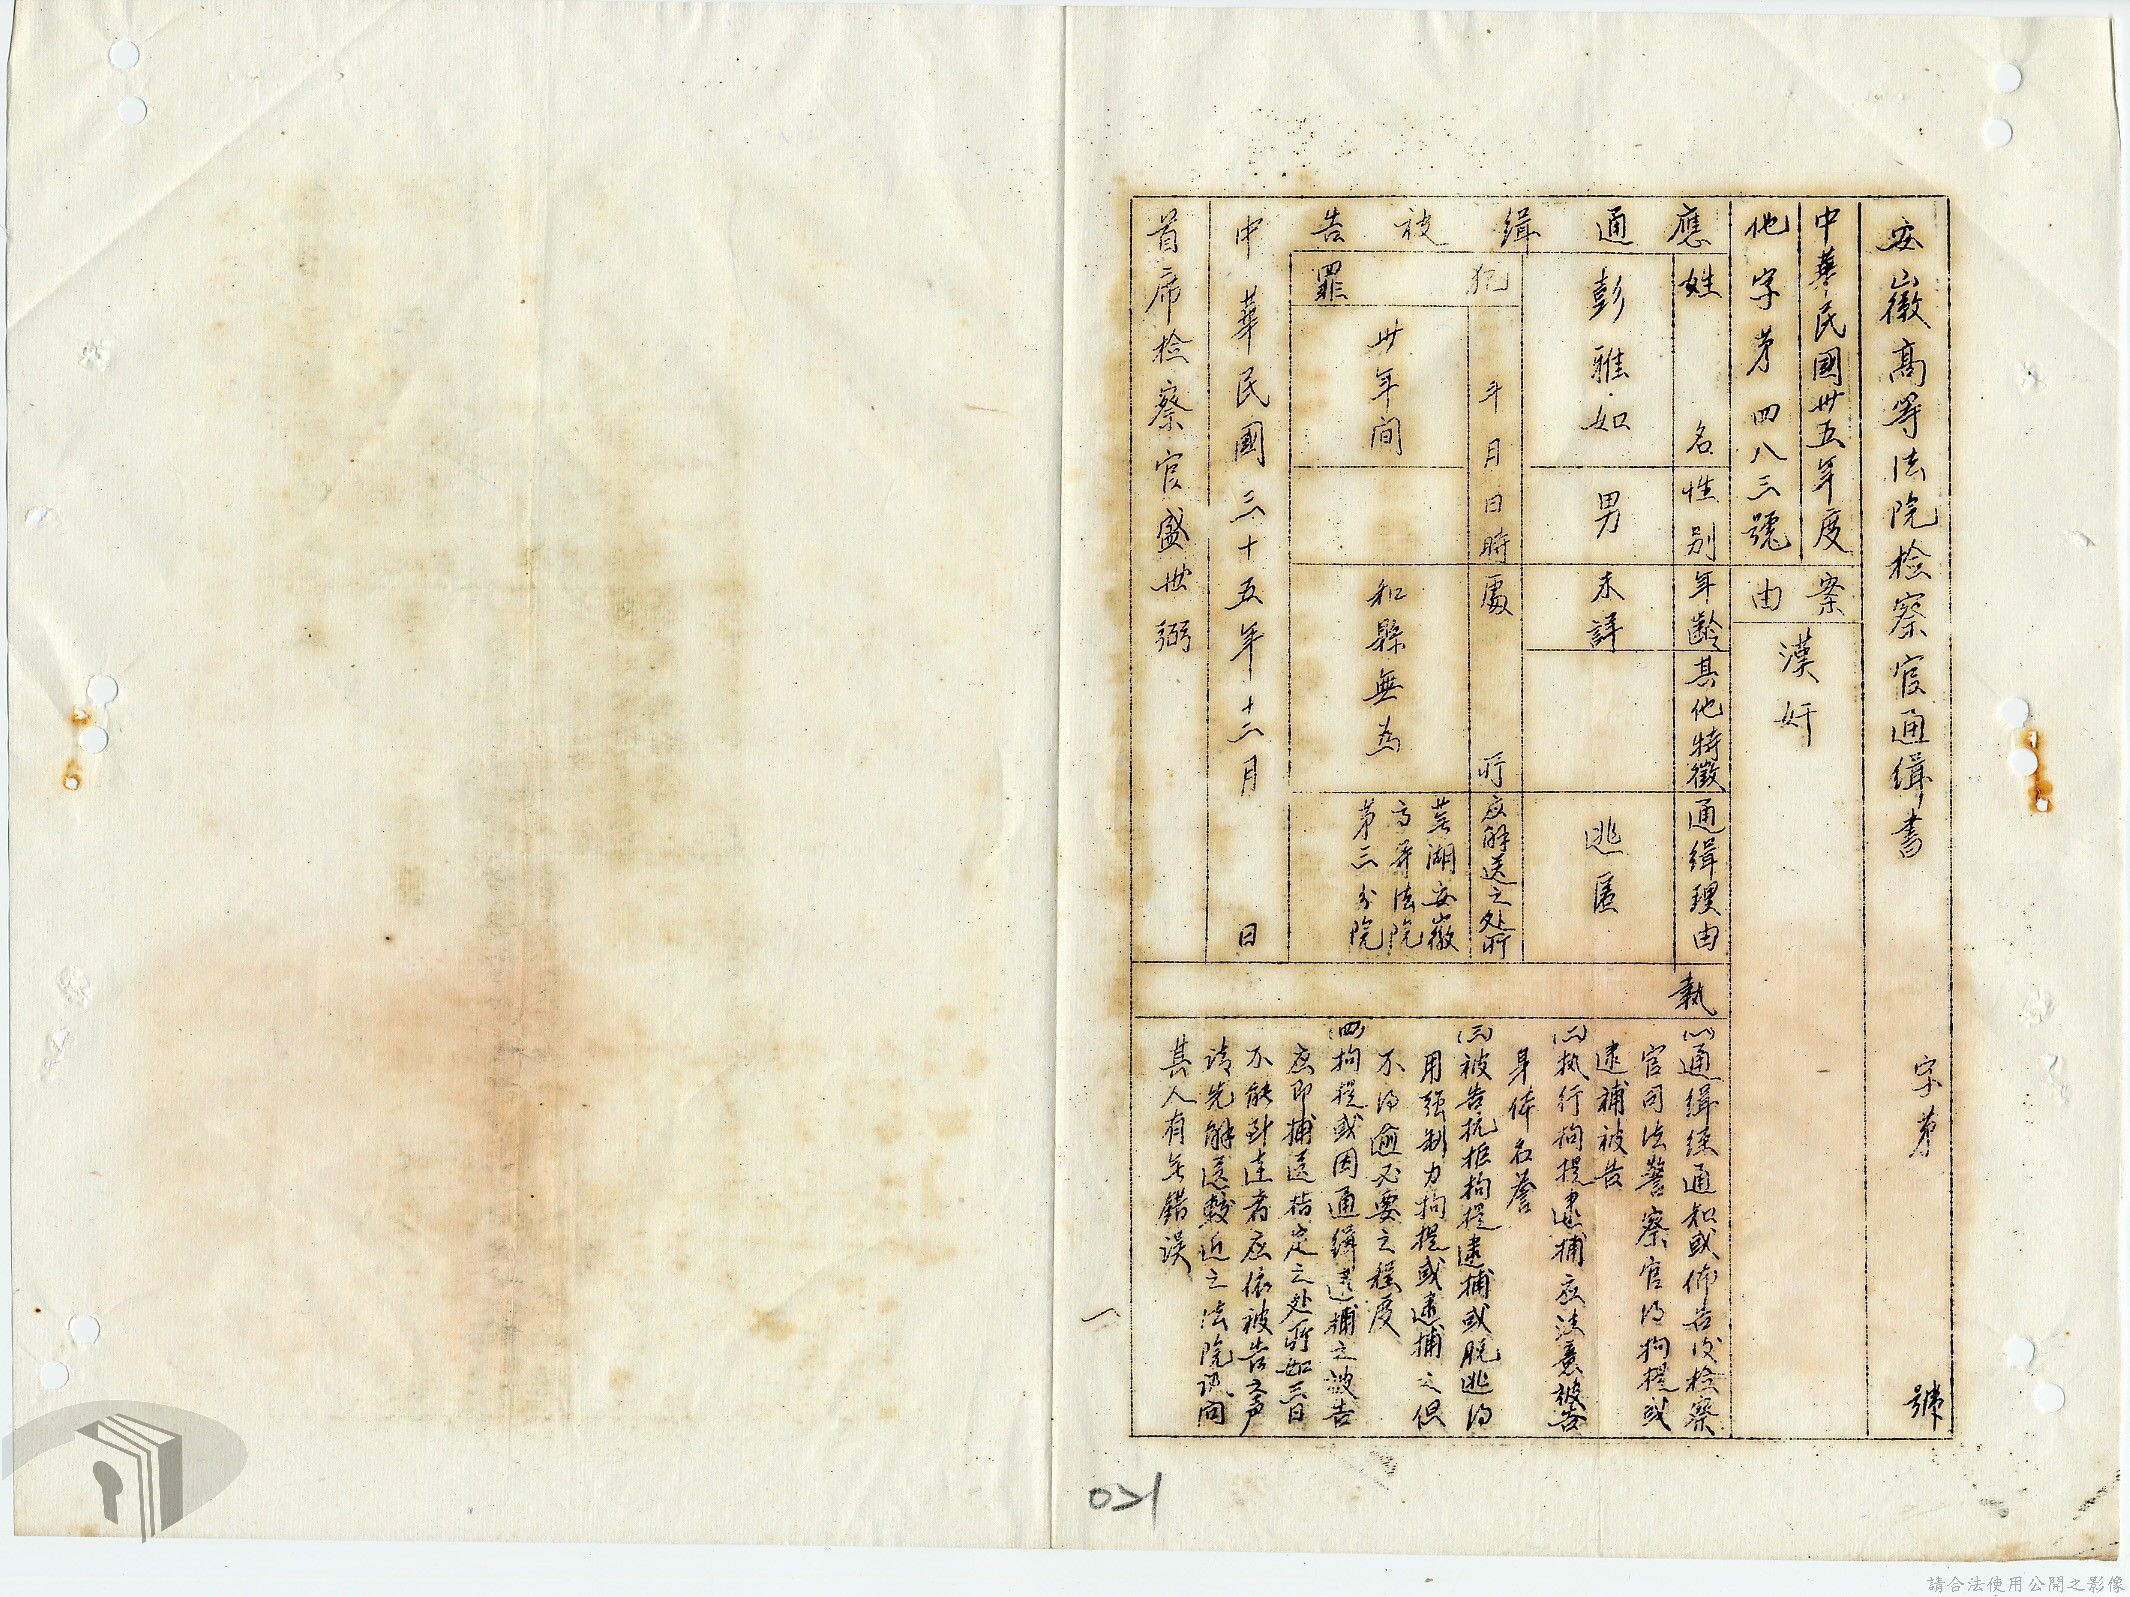 安徽高等法院檢察官通緝書　字第　號
中華民國卅五年度
他字第四八三號
案由
漢奸
應通緝被告
姓名
性別
年齡
其他特徵
通緝理由
彭雅如
男
未詳
逃匿
犯罪
年月日時
處所
应解送之処所
卅年間
和縣無為
蕪湖安徽
高等法院
第三分院
中華民國三十五年十二月　日
首席检察官盛世弼
執
(一)通缉经通知或佈告后检察
官司法警察官得拘提或
逮補被告
(二)执行拘提逮捕应注意被告
身体名誉
(三)被告抗拒拘提逮捕或脱逃得
用强制力拘提或逮捕之但
不得逾必要之程度
(四)拘提或因通缉逮捕之被告
应即捕送指定之处所如三日
不能到达者应依被告之声
请先解送較近之法院讯问
其人有无錯误
021
請合法使用公開之影像